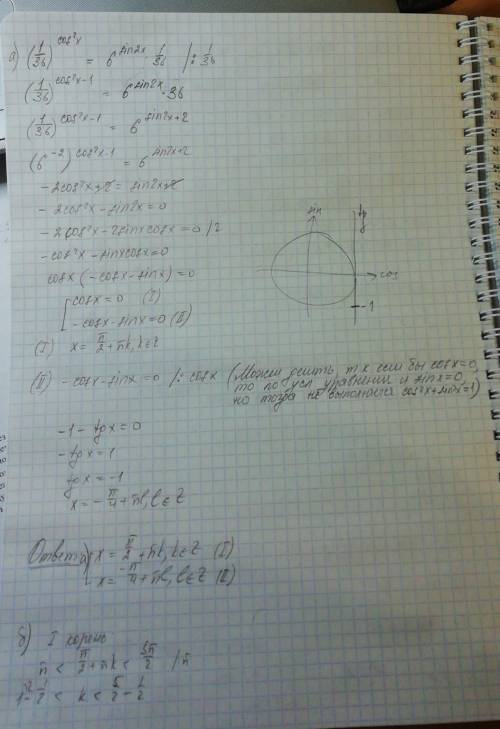 а) (1/36)^cos²x = 6^sin2x · 1/36 | : 1/36
(1/36)^cos²x-1 = 6^sin2x · 36
(1/36)^cos²x-1 = 6^sin2x+2
(6^-2)^cos²x-1 = 6^sin2x+2
-2cos²x+2 = sin2x+2
-2cos²x - sin2x = 0
-2cos²x - 2sinxcosx = 0 /2
-cos²x - sinxcosx = 0
cosx(-cosx - sinx) = 0
[cosx = 0 (I)
-cosx - sinx = 0 (II)
sin
tg
cos
-1
(I) x = π/2 + πk, k∈Z
(II) -cosx - sinx = 0 /: cosx (Можем делить, т к если бы cosx=0,
то по усл уравнения и sinx=0,
но тогда не выполняется cos²x+sin²x=1)
-1 - tgx = 0
-tgx = 1
tgx = -1
x = -π/4 + πl, l∈Z
Ответ: а) [x = π/2 + πk, k∈Z (I)
x = -π/4 + πl, l∈Z (II)
б) I корень
π < π/2 + πk < 5π/2 /π
1 - 1/2 < k < 5/2 - 1/2